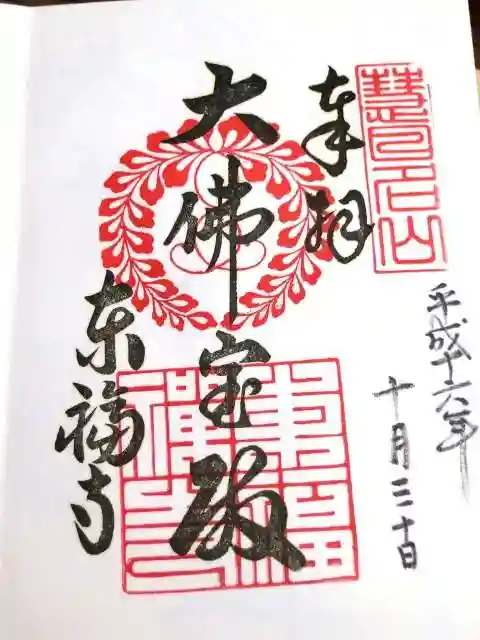 慧日山
平成十六年
十月三十日
奉拝
大佛宝殿
東福禪寺
東福寺